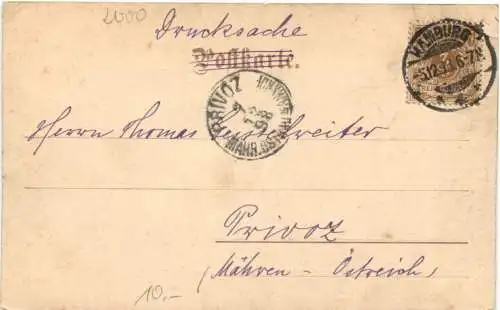 2000
Drucksache
Postkarte.
HAMBURG
5.12.98. 6-7
PRIVOZ
98
MÄHR. OST
Herrn Thomas
Privoz
(Mähren - Östreich)
10.-